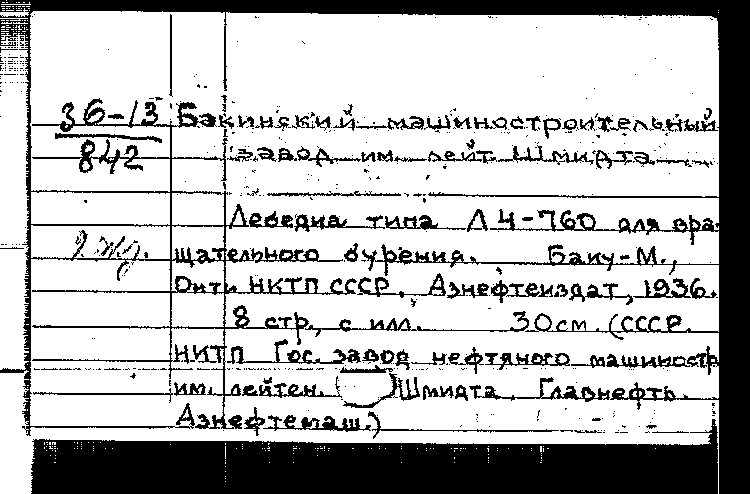 36-13
842
Бакинский машиностроительный
завод им. лейт. Шмидта
Лебедка типа Л 4-760 для вра-
щательного бурения. Баку-М.,
Онти НКТП СССР, Азнефтеиздат, 1936.
8 стр., с илл. 30см. (СССР.
НКТП Гос. завод нефтяного машиностр
им. лейтен. Шмидта. Главнефть.
Азнефтемаш.)